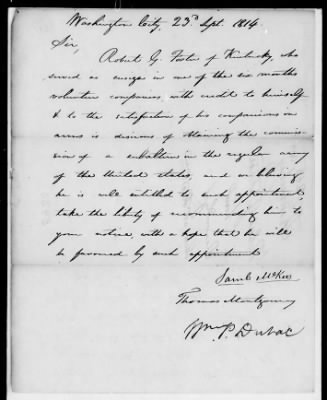 Washington City, 23d Sept. 1814.
Sir,
Robert G. Foster of Kentucky, who
served as ensign in one of the six months
volunteer companies with credit to himself
& to the satisfaction of his companions in
arms is desirous of obtaining the commis-
sion of a subaltern in the regular army
of the United States, and we believing
he is well entitled to such appointment
take the liberty of recommending him to
your notice, with a hope that he will
be favoured by such appointment
Saml McKee
Thomas Montgomery
Wm P. Duval